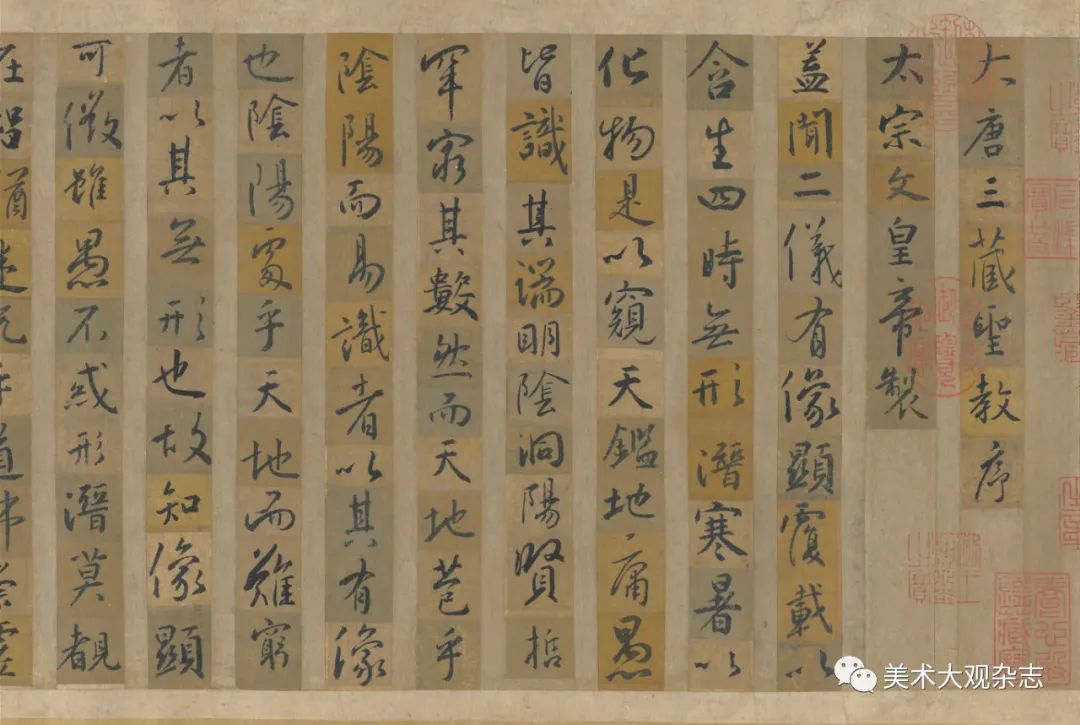 大唐三藏聖教序
太宗文皇帝製
蓋聞二儀有像顯覆載以
含生四時無形潛寒暑以
化物是以窺天鑑地庸愚
皆識其端明陰洞陽賢哲
罕窮其數然而天地苞乎
陰陽而易識者以其有像
也陰陽處乎天地而難窮
者以其無形也故知像顯
可徵雖愚不惑形潛莫覩
在智猶迷
美术大观杂志